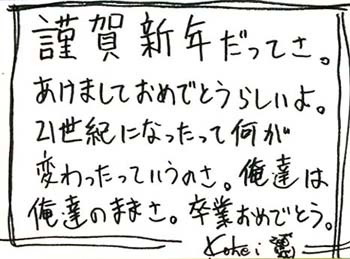 謹賀新年だってさ。
あけましておめでとうらしいよ。
21世紀になったって何が
変わったっていうのさ。俺達は
俺達のままさ。卒業おめでとう。
Kohei